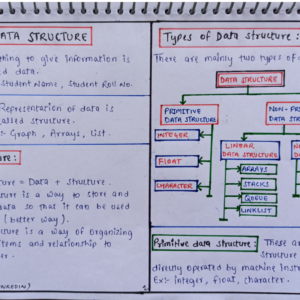 DATA STRUCTURE
thing to give information is
data.
Student Name, Student Roll No.
Representation of data is
called structure.
:- Graph, Arrays, List.
ure:
ture = Data + Structure.
ture is a way to store and
data so that it can be used
(better way).
ucture is a way of organizing
items and relationship to
er.
Types of Data structure :
There are mainly two types of
DATA STRUCTURE
PRIMITIVE
DATA STRUCTURE
NON-PR
DATA STR
INTEGER
FLOAT
CHARACTER
LINEAR
DATA STRUCTURE
N
DATA
ARRAYS
STACKS
QUEUE
LINKLIST
Primitive data structure: These ar
structure
directly operated by machine inst
Ex:- Integer, float, character.